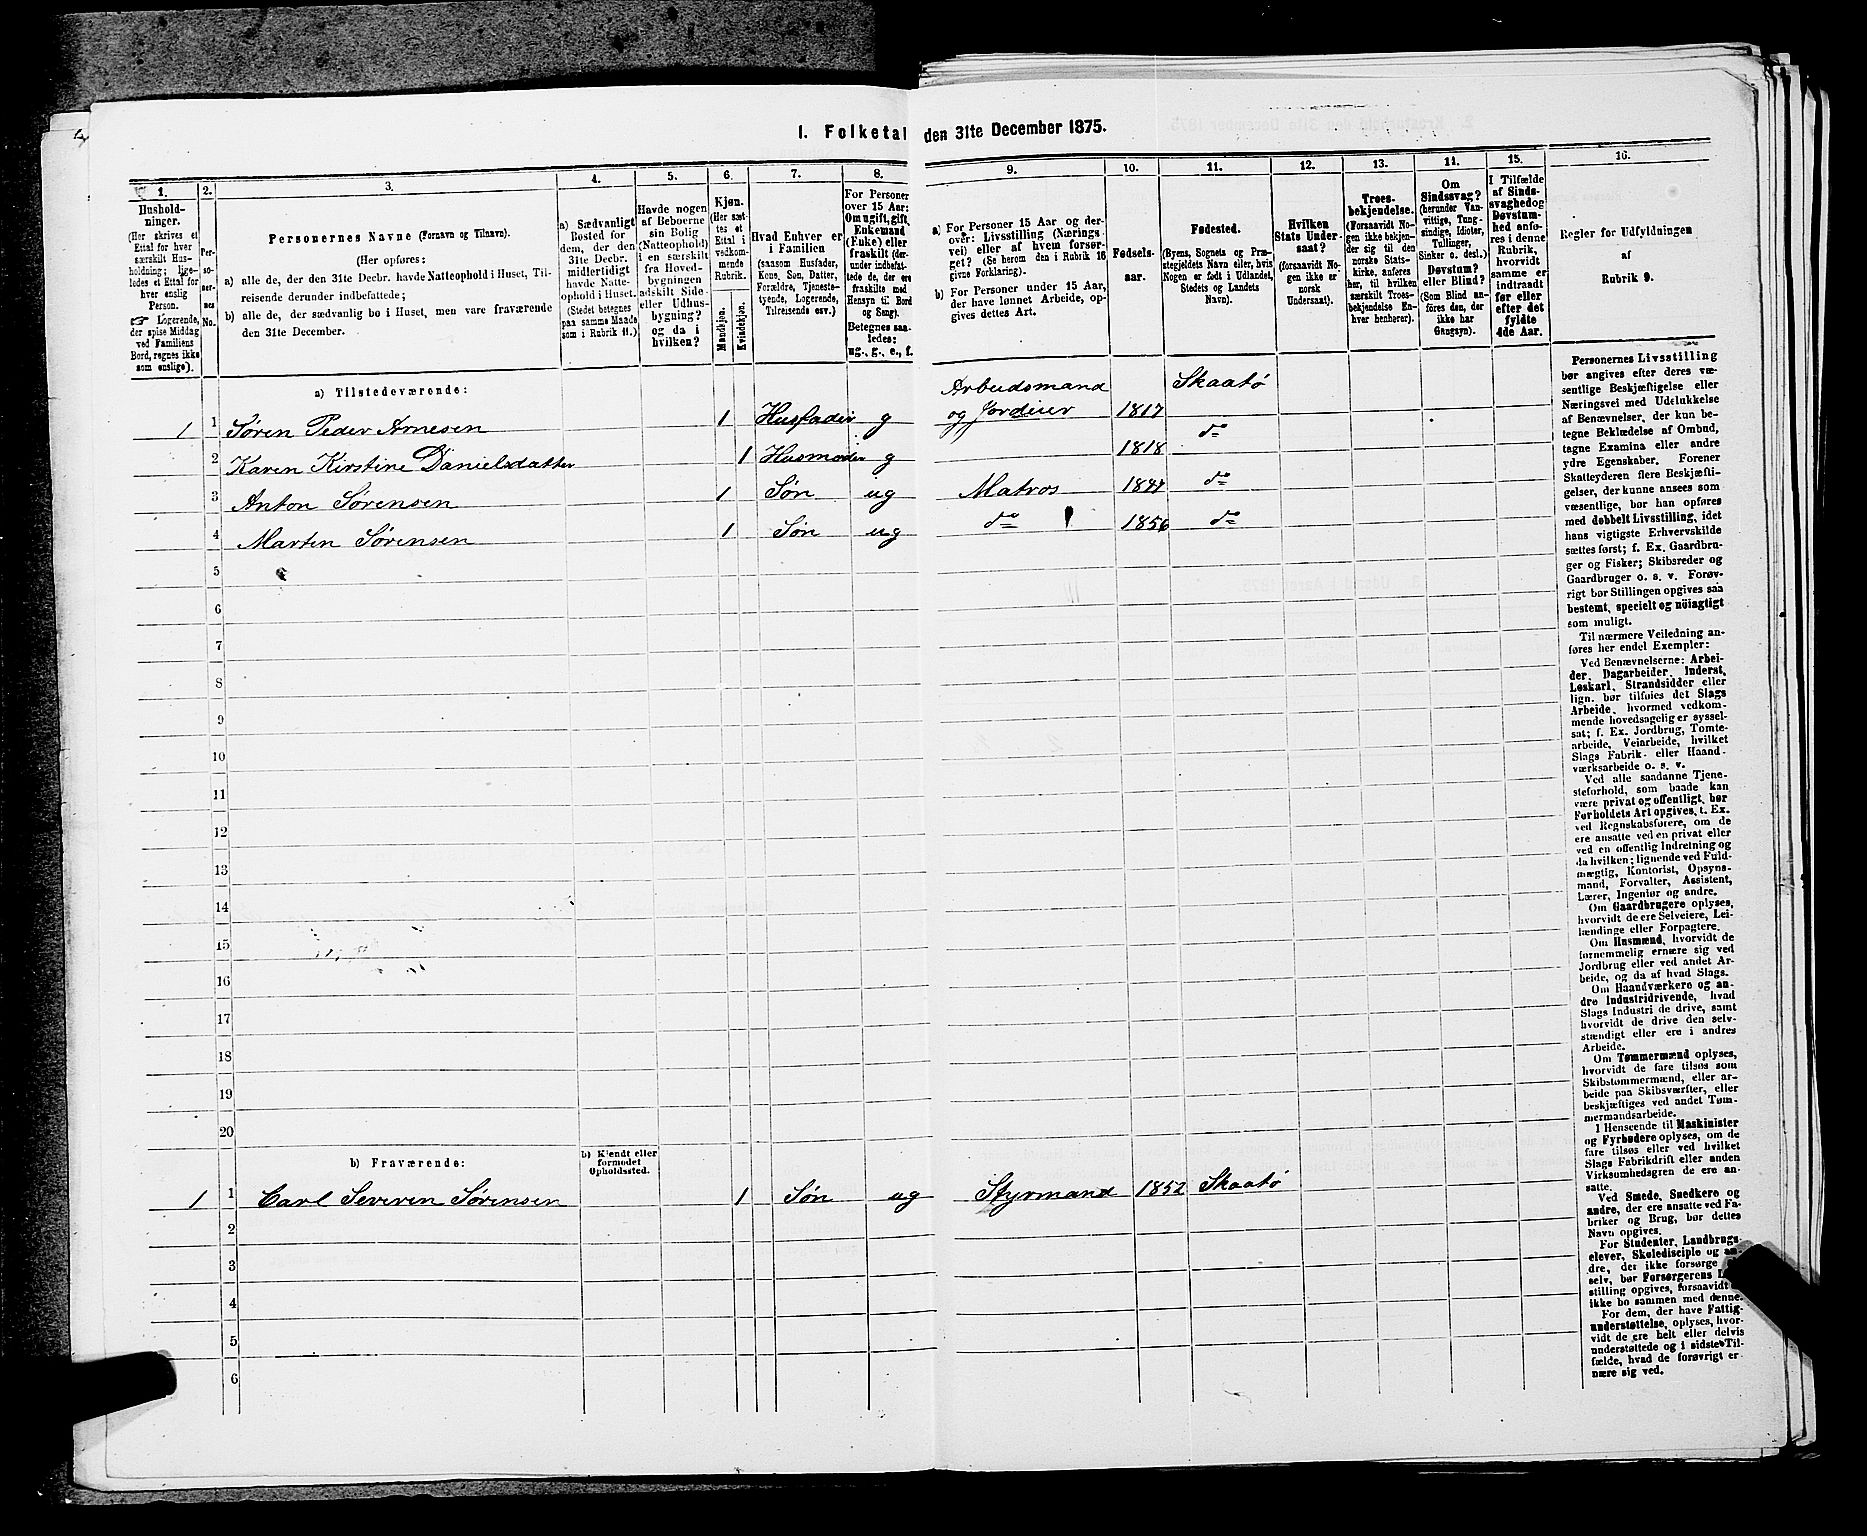 I. Folketal den 31te December 1875.
1. 2. 3. 4. 5. 6. 7. 8. 9. 10. 11. 12. 13. 14. 15. 16.
Hushold-
ninger.
(Her skrives et
Ettal for hver
særskilt Hus-
holdning; lige-
ledes et Ettal for
hver enslig
Person.
☞ Logerende,
der spise Middag
ved Familiens
Bord, regnes ikke
som enslige).
Per-
so-
ner-
nes
No.
Personernes Navne (Fornavn og Tilnavn).
(Her opføres:
a) alle de, der den 31te Decbr. havde Natteophold i Huset, Til-
reisende derunder indbefattede;
b) alle de, der sædvanlig bo i Huset, men vare fraværende
den 31te December.
a) Sædvanligt
Bosted for
dem, der den
31te Decbr.
midlertidigt
havde Natte-
ophold i Huset.
(Stedet betegnes
paa samme Maade
som i Rubrik 11.)
Havde nogen
af Beboerne
sin Bolig
(Natteophold)
i en særskilt
fra Hoved-
bygningen
adskilt Side-
eller Udhus-
bygning?
og da i
hvilken?
Kjøn.
(Her sæt-
tes et
Ettal i
vedkom-
mende
Rubrik.
Mandkjøn.
Kvindekjøn.
Hvad Enhver er
i Familien
(saasom Husfader,
Kone, Søn, Datter,
Forældre, Tjeneste-
tyende, Logerende,
Tilreisende osv.)
For Personer
over 15 Aar:
Om ugift, gift,
Enkemand
(Enke) eller
fraskilt (der-
under indbefat-
tede de, der ere
fraskilte med
Hensyn til Bord
og Seng).
Betegnes saa-
ledes:
ug., g., e., f.
a) For Personer 15 Aar og der-
over: Livsstilling (Nærings-
vei) eller af hvem forsør-
get? (Se herom den i Rubrik 16
givne Forklaring).
b) For Personer under 15 Aar,
der have lønnet Arbeide, op-
gives dettes Art.
Fødsels-
aar.
Fødested.
(Byens, Sognets og Præ-
stegjeldets Navn eller, hvis
Nogen er født i Udlandet,
Stedets og Landets
Navn).
Hvilken
Stats Under-
saat?
(forsaavidt No-
gen ikke er
norsk
Undersaat).
Troes-
bekjendelse.
(Forsaavidt No-
gen ikke bekjen-
der sig til den
norske Stats-
kirke, anføres
her, til hvilken
særskilt Troes-
bekjendelse En-
hver henhører).
Om
Sindssvag?
(herunder Van-
vittige, Tung-
sindige, Idioter,
Tullinger,
Sinker o. desl.)
Døvstum?
eller Blind?
(Som Blind an-
føres den, der
ikke har
Gangsyn).
I Tilfælde
af Sinds-
svaghed og
Døvstum-
hed anfø-
res i denne
Rubrik,
hvorvidt
samme er
indtraadt
før eller
efter det
fyldte
4de Aar.
Regler for Udfyldningen
af
Rubrik 9.
a) Tilstedeværende:
1 1 Søren Peder Arnesen 1 Husfader g Arbeidsmand og Jordeier 1817 Skaatø
2 Karen Kirstine Danielsdatter 1 Husmoder g 1818 do
3 Anton Sørensen 1 Søn ug Matros 1844 do
4 Martin Sørensen 1 Søn ug do 1856 do
5
6
7
8
9
10
11
12
13
14
15
16
17
18
19
20
b) Fraværende:
b) Kjendt eller
formodet
Opholdssted.
1 1 Carl Severen Sørensen 1 Søn ug Styrmand 1852 Skaatø
2
3
4
5
6
Personernes Livsstilling
bør angives efter deres væ-
sentlige Beskjæftigelse eller
Næringsvei med Udelukkelse
af Benævnelser, der kun be-
tegne Beklædelse af Ombud,
tagne Examina eller andre
ydre Egenskaber. Forener
Skatteyderen flere Beskjæfti-
gelser, der kunne ansees som
væsentlige, bør han opføres
med dobbelt Livsstilling, idet
hans vigtigste Erhvervskilde
sættes først; f. Ex. Gaardbru-
ger og Fisker; Skibsreder og
Gaardbruger o. s. v. Forøv-
rigt bør Stillingen opgives saa
bestemt, specielt og nöiagtigt
som muligt.
Til nærmere Veiledning an-
føres her endel Exempler:
Ved Benævnelserne: Arbei-
der, Dagarbeider, Inderst,
Løskarl, Strandsidder eller
lign. bør tilføies det Slags
Arbeide, hvormed vedkom-
mende hovedsagelig er syssel-
sat; f. Ex. Jordbrug, Tomte-
arbeide, Veiarbeide, hvilket
Slags Fabrik- eller Haand-
værksarbeide o. s. v.
Ved alle saadanne Tjene-
steforhold, som baade kan
være privat og offentligt, bør
Forholdets Art opgives, t. Ex.
ved Regnskabsførere, om de
ere ansatte ved en privat eller
ved en offentlig Indretning og
da hvilken; lignende ved Fuld-
mægtig, Kontorist, Opsyns-
mand, Forvalter, Assistent,
Lærer, Ingeniør og andre.
Om Gaardbrugere oplyses,
hvorvidt de ere Selveiere, Lei-
lændinge eller Forpagtere.
Om Husmænd, hvorvidt de
fornemmelig ernære sig ved
Jordbrug eller ved andet Ar-
beide, og da af hvad Slags.
Om Haandværkere og an-
dre Industridrivende, hvad
Slags Industri de drive, samt
hvorvidt de drive den selv-
stændigt eller ere i andres
Arbeide.
Om Tømmermænd oplyses,
hvorvidt de fare tilsøs som
Skibstømmermænd, eller ar-
beide paa Skibsværfter, eller
beskjæftiges ved andet Tøm-
mermandsarbeide.
I Henseende til Maskinister
og Fyrbødere oplyses, om de
fare tilsøs eller ved hvilket
Slags Fabrikdrift eller anden
Virksomhedsgren de ere an-
satte.
Ved Smede, Snedkere og
andre, der ere ansatte ved Fa-
briker og Brug, bør dettes
Navn opgives.
For Studenter, Landbrugs-
elever, Skoledisciple og an-
dre, der ikke forsørge
selv, bør Forsørgerens
stilling opgives, forsaavidt
ikke bo sammen med denne.
For dem, der have Fattig-
understøttelse, oplyses, hvor-
vidt de ere helt eller delvis
understøttede og i sidste Til-
fælde, hvad de forøvrigt er-
nære sig ved.